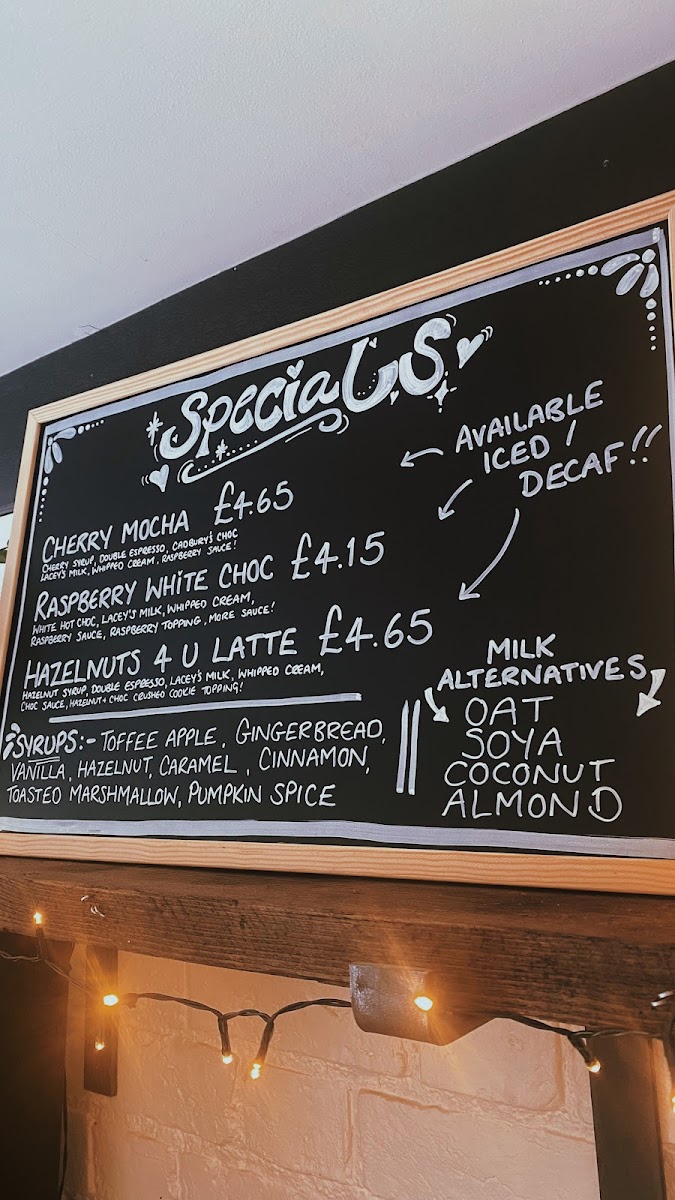 SpeciaLS
AVAILABLE
ICED /
DECAF!!
CHERRY MOCHA £4.65
CHERRY SYRUP, DOUBLE ESPRESSO, CADBURY'S CHOC
LACEY'S MILK, WHIPPED CREAM, RASPBERRY SAUCE!
RASPBERRY WHiTE CHOC £4.15
WHITE HOT CHOC, LACEY'S MILK, WHIPPED CREAM,
RASPBERRY SAUCE, RASPBERRY TOPPING, MORE SAUCE!
HAZELNUTS 4 U LATTE £4.65
HAZELNUT SYRUP, DOUBLE ESPRESSO, LACEY'S MILK, WHIPPED CREAM,
CHOC SAUCE, HAZELNUT + CHOC CRUSHED COOKIE TOPPING!
SYRUPS:- TOFFEE APPLE, GINGERBREAD,
VANILLA, HAZELNUT, CARAMEL, CINNAMON,
TOASTED MARSHMALLOW, PUMPKIN SPICE
MILK
ALTERNATIVES
OAT
SOYA
COCONUT
ALMOND